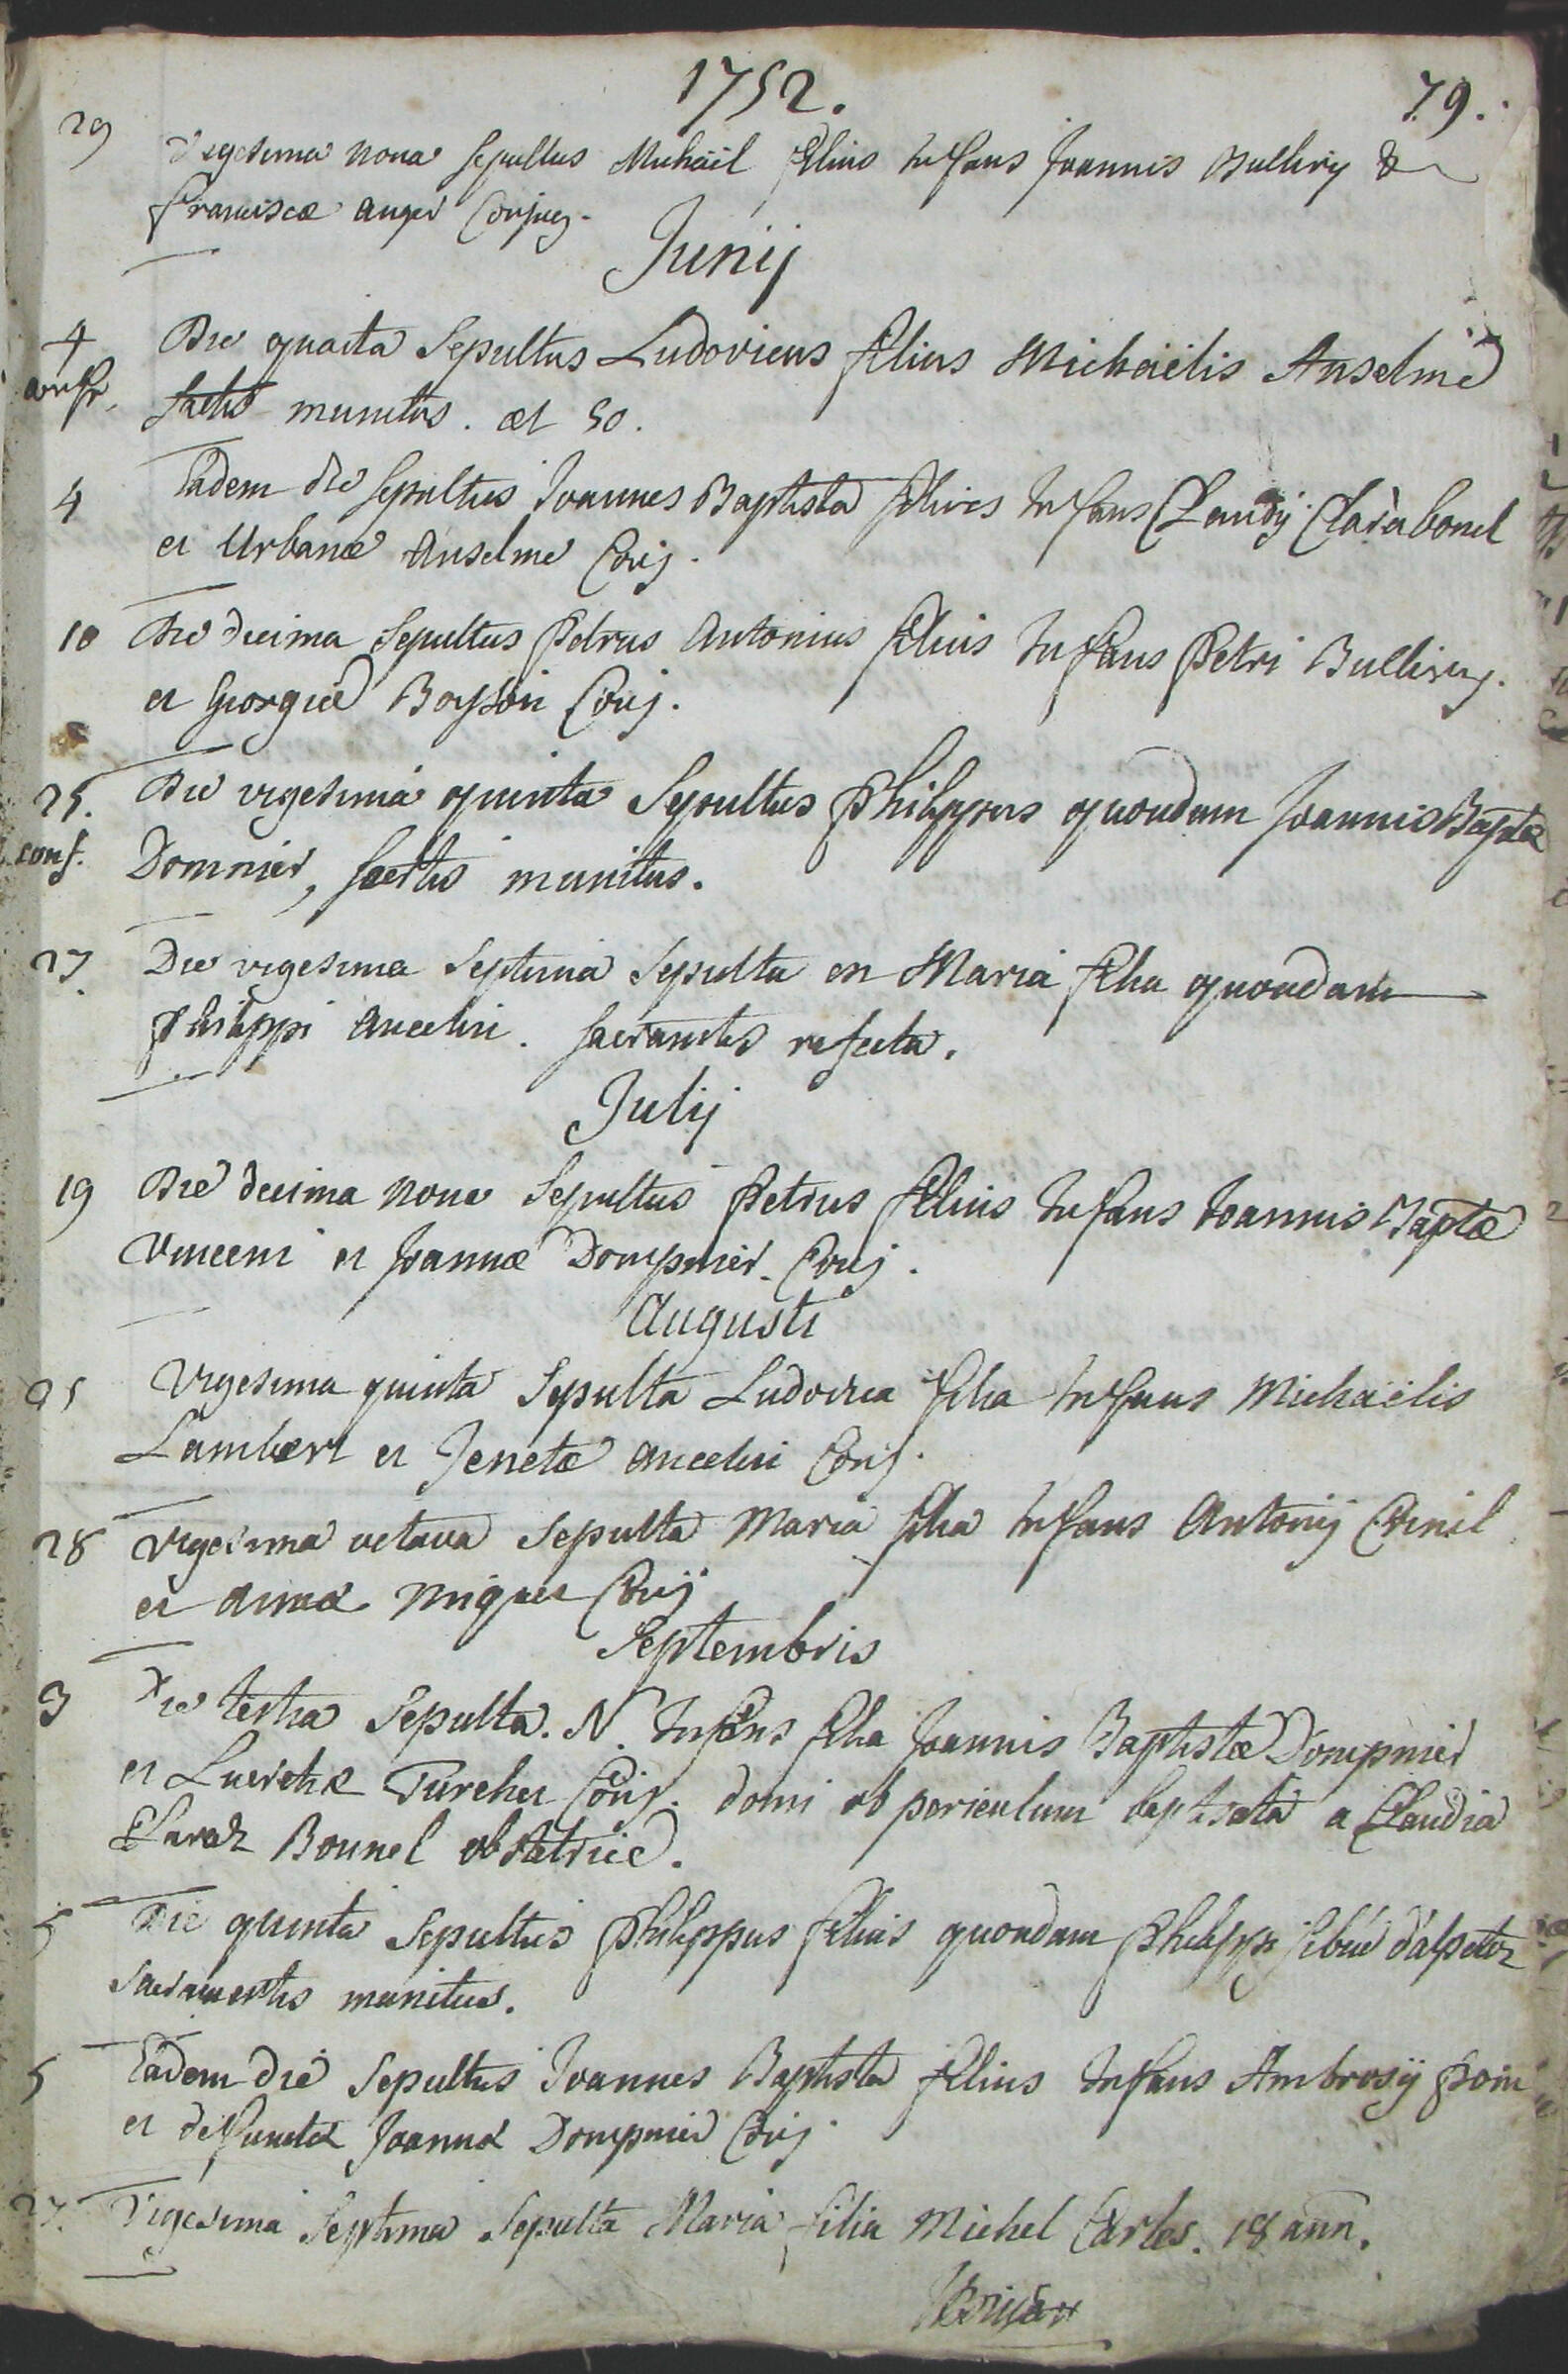 1752. 79.
29 Vigesima nona sepultus Michaël filius infans Joannis Bulliry &
franciscæ auger Conjug.
Junij
4 Die quarta Sepultus Ludovicus filius Michaëlis Anselme
conf. sactis munitus. æt 50.
4 Eadem die sepultus Joannes Baptista filius infans Claudij Clarabonel
et Urbanæ Anselme Conj.
10 Die decima Sepultus Petrus Antonius filius infans Petri Bulliry.
et Georgiæ Boysson Conj.
25. Die vigesima quinta Sepultus philippus quondam Joannis Baptæ
conf. Domnier, sactis munitus.
27. Die vigesima septima sepulta en Maria filia quondam
philippi ancelin. sacramtis refecta.
Julij
19 Die decima nona Sepultus Petrus filius infans Joannis Baptæ
Vincent et Joannæ Dompnier. Conj.
Augusti
25 Vigesima quinta Sepulta Ludovica filia infans Michaëlis
Lambert et Jenetæ ancelin Conj.
28 Vigesima octava sepulta Maria filia infans Antonij
et annæ Miguet Conj
Septembris
3 Die tertia Sepulta. N. infans filia Joannis Baptistæ Dompnier
et Lucretiæ Turcher Conj. domi ob periculum baptisata a Claudia
Claraz Bonnel obstetrice.
5 Die quinta Sepultus philippus filius quondam philippi d'alpetaz
sacramentis munitus.
5 Eadem die sepultus Joannes Baptista filius infans Ambrosij
et defunctæ Joannæ Dompnier Conj.
27. Vigesima septima sepulta Maria filia Michel Carles. 18 ann.